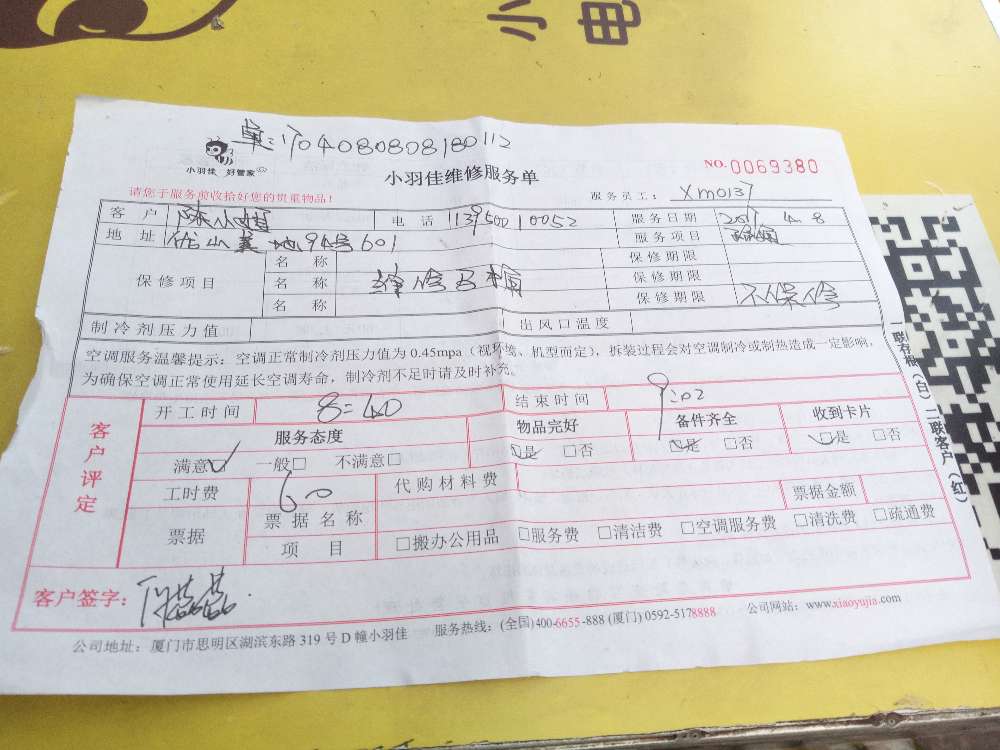 小 电
单：1704080808180112
小羽佳 好管家
小羽佳维修服务单
NO.0069380
请您于服务前收拾好您的贵重物品！
服务员工： Xm0137
客 户 陈小姐 电 话 13950010052 服务日期 2017 4. 8
地 址 94号601 服务项目
保修项目 名 称 保修期限
名 称 维修马桶 保修期限
名 称 保修期限 不保修
制冷剂压力值 出风口温度
空调服务温馨提示：空调正常制冷剂压力值为 0.45mpa（视环境、机型而定），拆装过程会对空调制冷或制热造成一定影响，
为确保空调正常使用延长空调寿命，制冷剂不足时请及时补充。
客户评定
开工时间 8:40 结束时间 9:02
服务态度 物品完好 备件齐全 收到卡片
满意☑ 一般□ 不满意□ ☑是 □否 ☑是 □否 ☑是 □否
工时费 60 代购材料费 票据金额
票据 票据名称
项 目 □搬办公用品 □服务费 □清洁费 □空调服务费 □清洗费 □疏通费
客户签字：
公司地址：厦门市思明区湖滨东路 319 号 D 幢小羽佳 服务热线：(全国)400-6655-888 (厦门) 0592-5178888 公司网站：www.xiaoyujia.com
一联存根（白）二联客户（红）